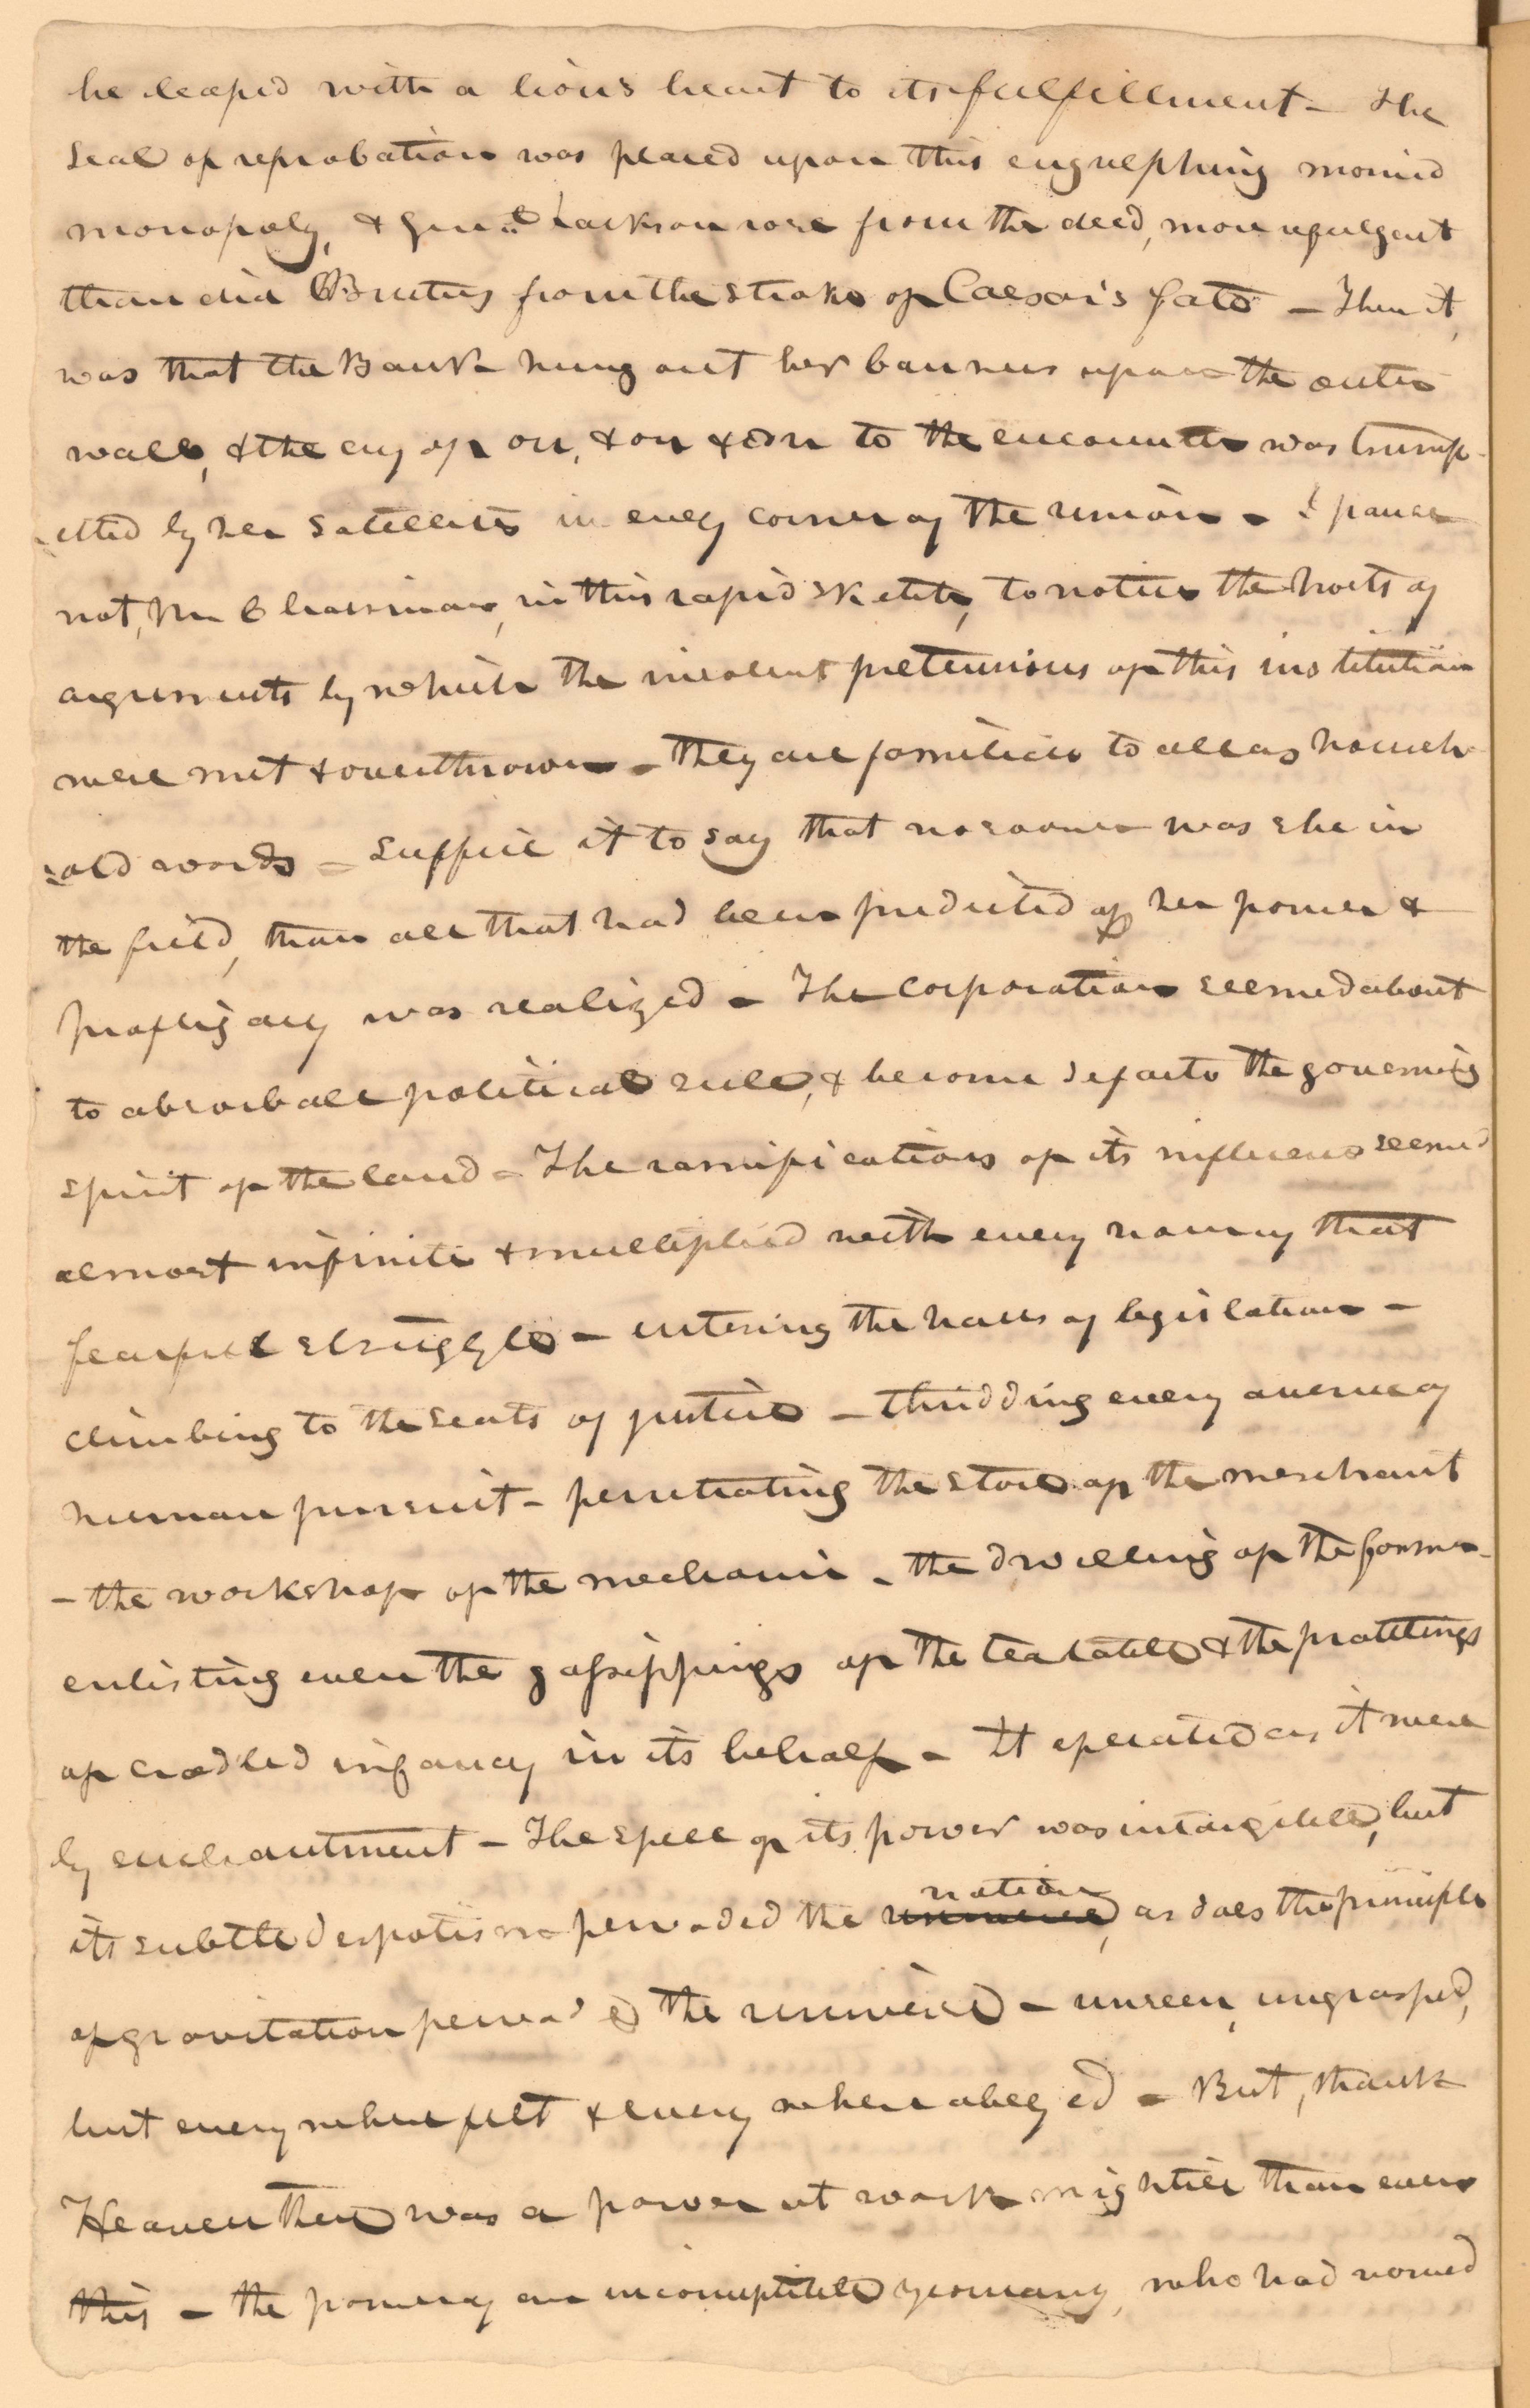 he leaped with a lion's heart to its fulfillment - The
seal of reprobation was placed upon this engulphing monied
monopoly, & Genl. Jackson rose from the deed, more refulgent
than did Brutus from the stroke of Caesar's fate - Then it
was that the Bank hung out her banners upon the outer
wall, & the cry of on, & on & on to the encounter was trump-
-etted by her satellites in every corner of the union - I pause
not, Mr Chairman, in this rapid sketch, to notice the hosts of
arguments by which the insolent pretensions of this institution
were met & overthrown - They are familiar to all as househ-
-old words - Suffice it to say that no sooner was she in
the field, than all that had been predicted of her power &
profligacy was realized - The corporation seemed about
to absorb all political rule, & become defacto the governing
spirit of the land - The ramifications of its influence seemed
almost infinite & multiplied with every hour of that
fearful struggle - entering the halls of legislation -
climbing to the seats of justice - thridding every avenue of
human pursuit - penetrating the store of the merchant
- the workshop of the mechanic - the dwelling of the farmer -
enlisting even the gossippings of the tea table & the prattlings
of cradled infancy in its behalf - It operated as it were
by enchantment - The spell of its power was intangible, but
nation
its subtle despotism pervaded the universe, as does the principle
of gravitation pervade the universe - unseen, ungrasped,
but every where felt & every where obeyed - But, thank
Heaven there was a power at work mightier than even
this - the power of an incorruptible yeomanry, who had vowed